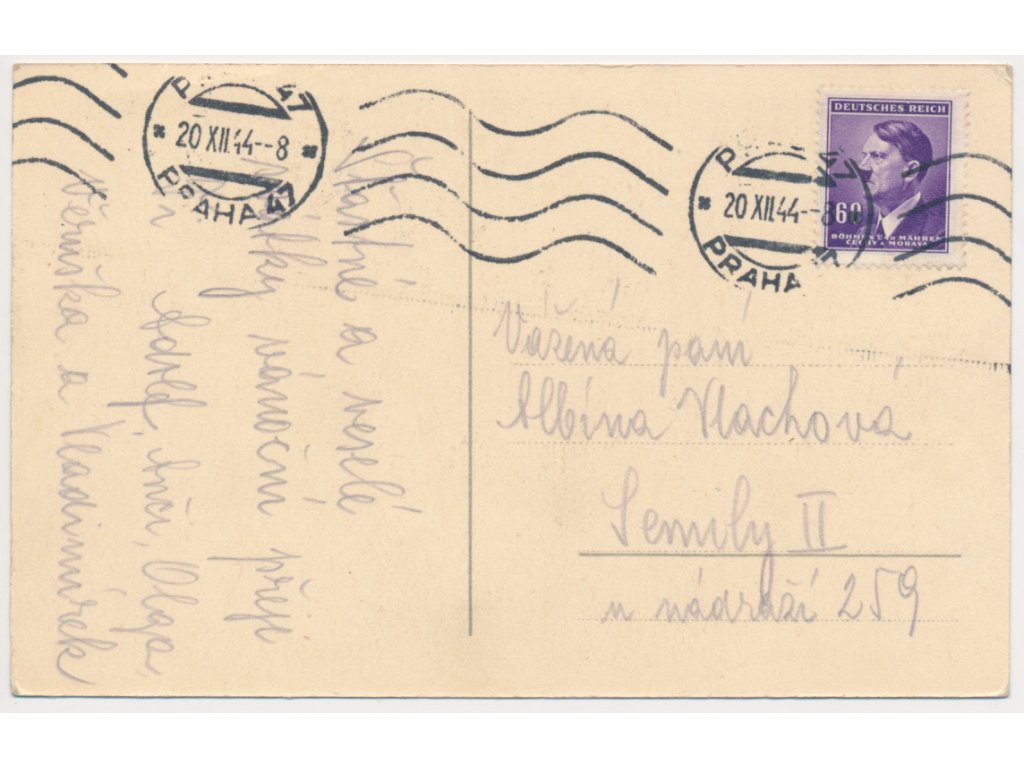 Šťastné a veselé
svátky vánoční přeje
Adolf, Anči, Olga,
Věruška a Vladimírek
P 47
* 20 XII. 44--8 *
PRAHA 47
P 47
* 20 XII. 44--8
PRAHA
DEUTSCHES REICH
60
BÖHMEN U. MÄHREN
ČECHY A MORAVA
Vážená paní
Albína Vlachová
Semily II
u nádraží 259